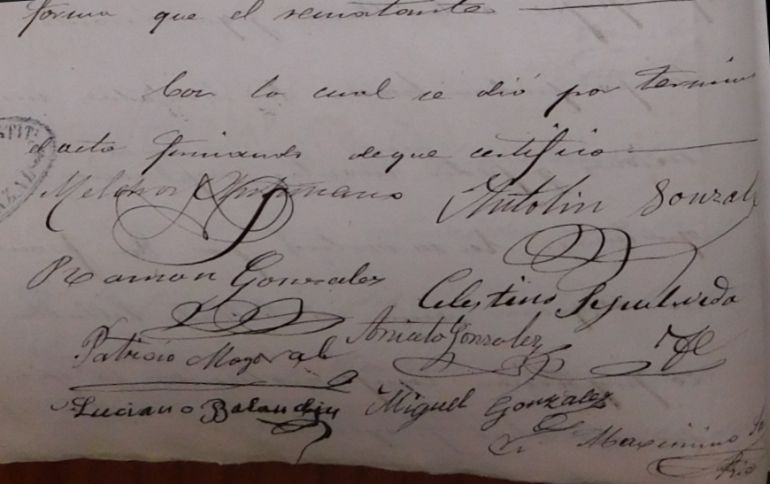 forma que el rematante
Con lo cual se dió por termin
el acto firmando de que certifico
STIT
ZAL
Melchor Antonio Gonzal
Ramon Gonzalez
Celestino Sepulveda
Patricio Mayoral Aniceto Gonzalez
Luciano Balandin Miguel Gonzalez
Maximino
Rio